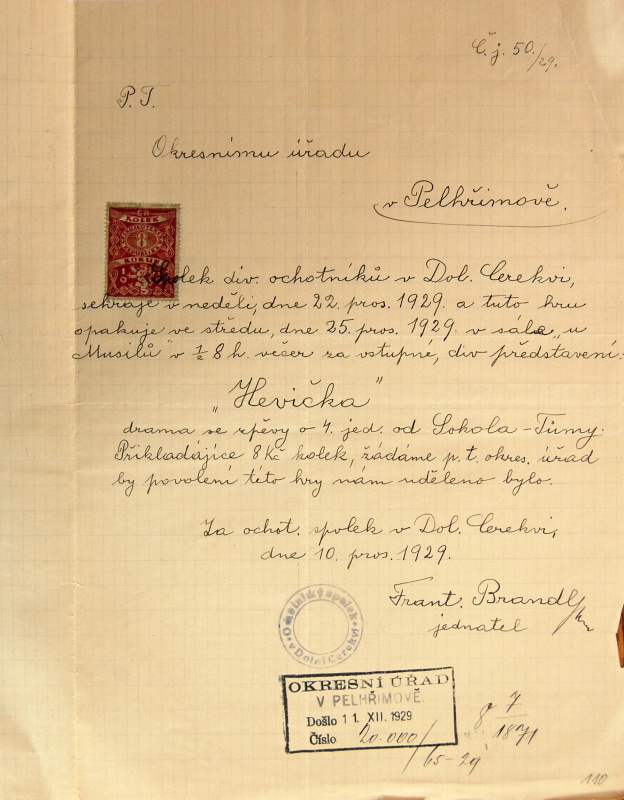 Č. j. 50/29.
P. T.
Okresnímu úřadu
v Pelhřimově.
ČR
KOLEK
8
KORUN
Spolek div. ochotníků v Dol. Cerekvi,
sehraje v neděli, dne 22. pros. 1929. a tuto hru
opakuje ve středu, dne 25. pros. 1929. v sále „u
Musilů" v ½ 8 h. večer za vstupné, div představení.
„Hevička"
drama se zpěvy o 4. jed. od Sokola-Tůmy.
Přikladájíce 8 Kč kolek, žádáme p. t. okres. úřad
by povolení této hry nám uděleno bylo.
Za ochot. spolek v Dol. Cerekvi,
dne 10. pros. 1929.
Frant. Brandl
jednatel
v Dolní Cerekvi
OKRESNÍ ÚŘAD
V PELHŘIMOVĚ.
Došlo 11. XII. 1929
Číslo 20.000/
65-29
8 7
110